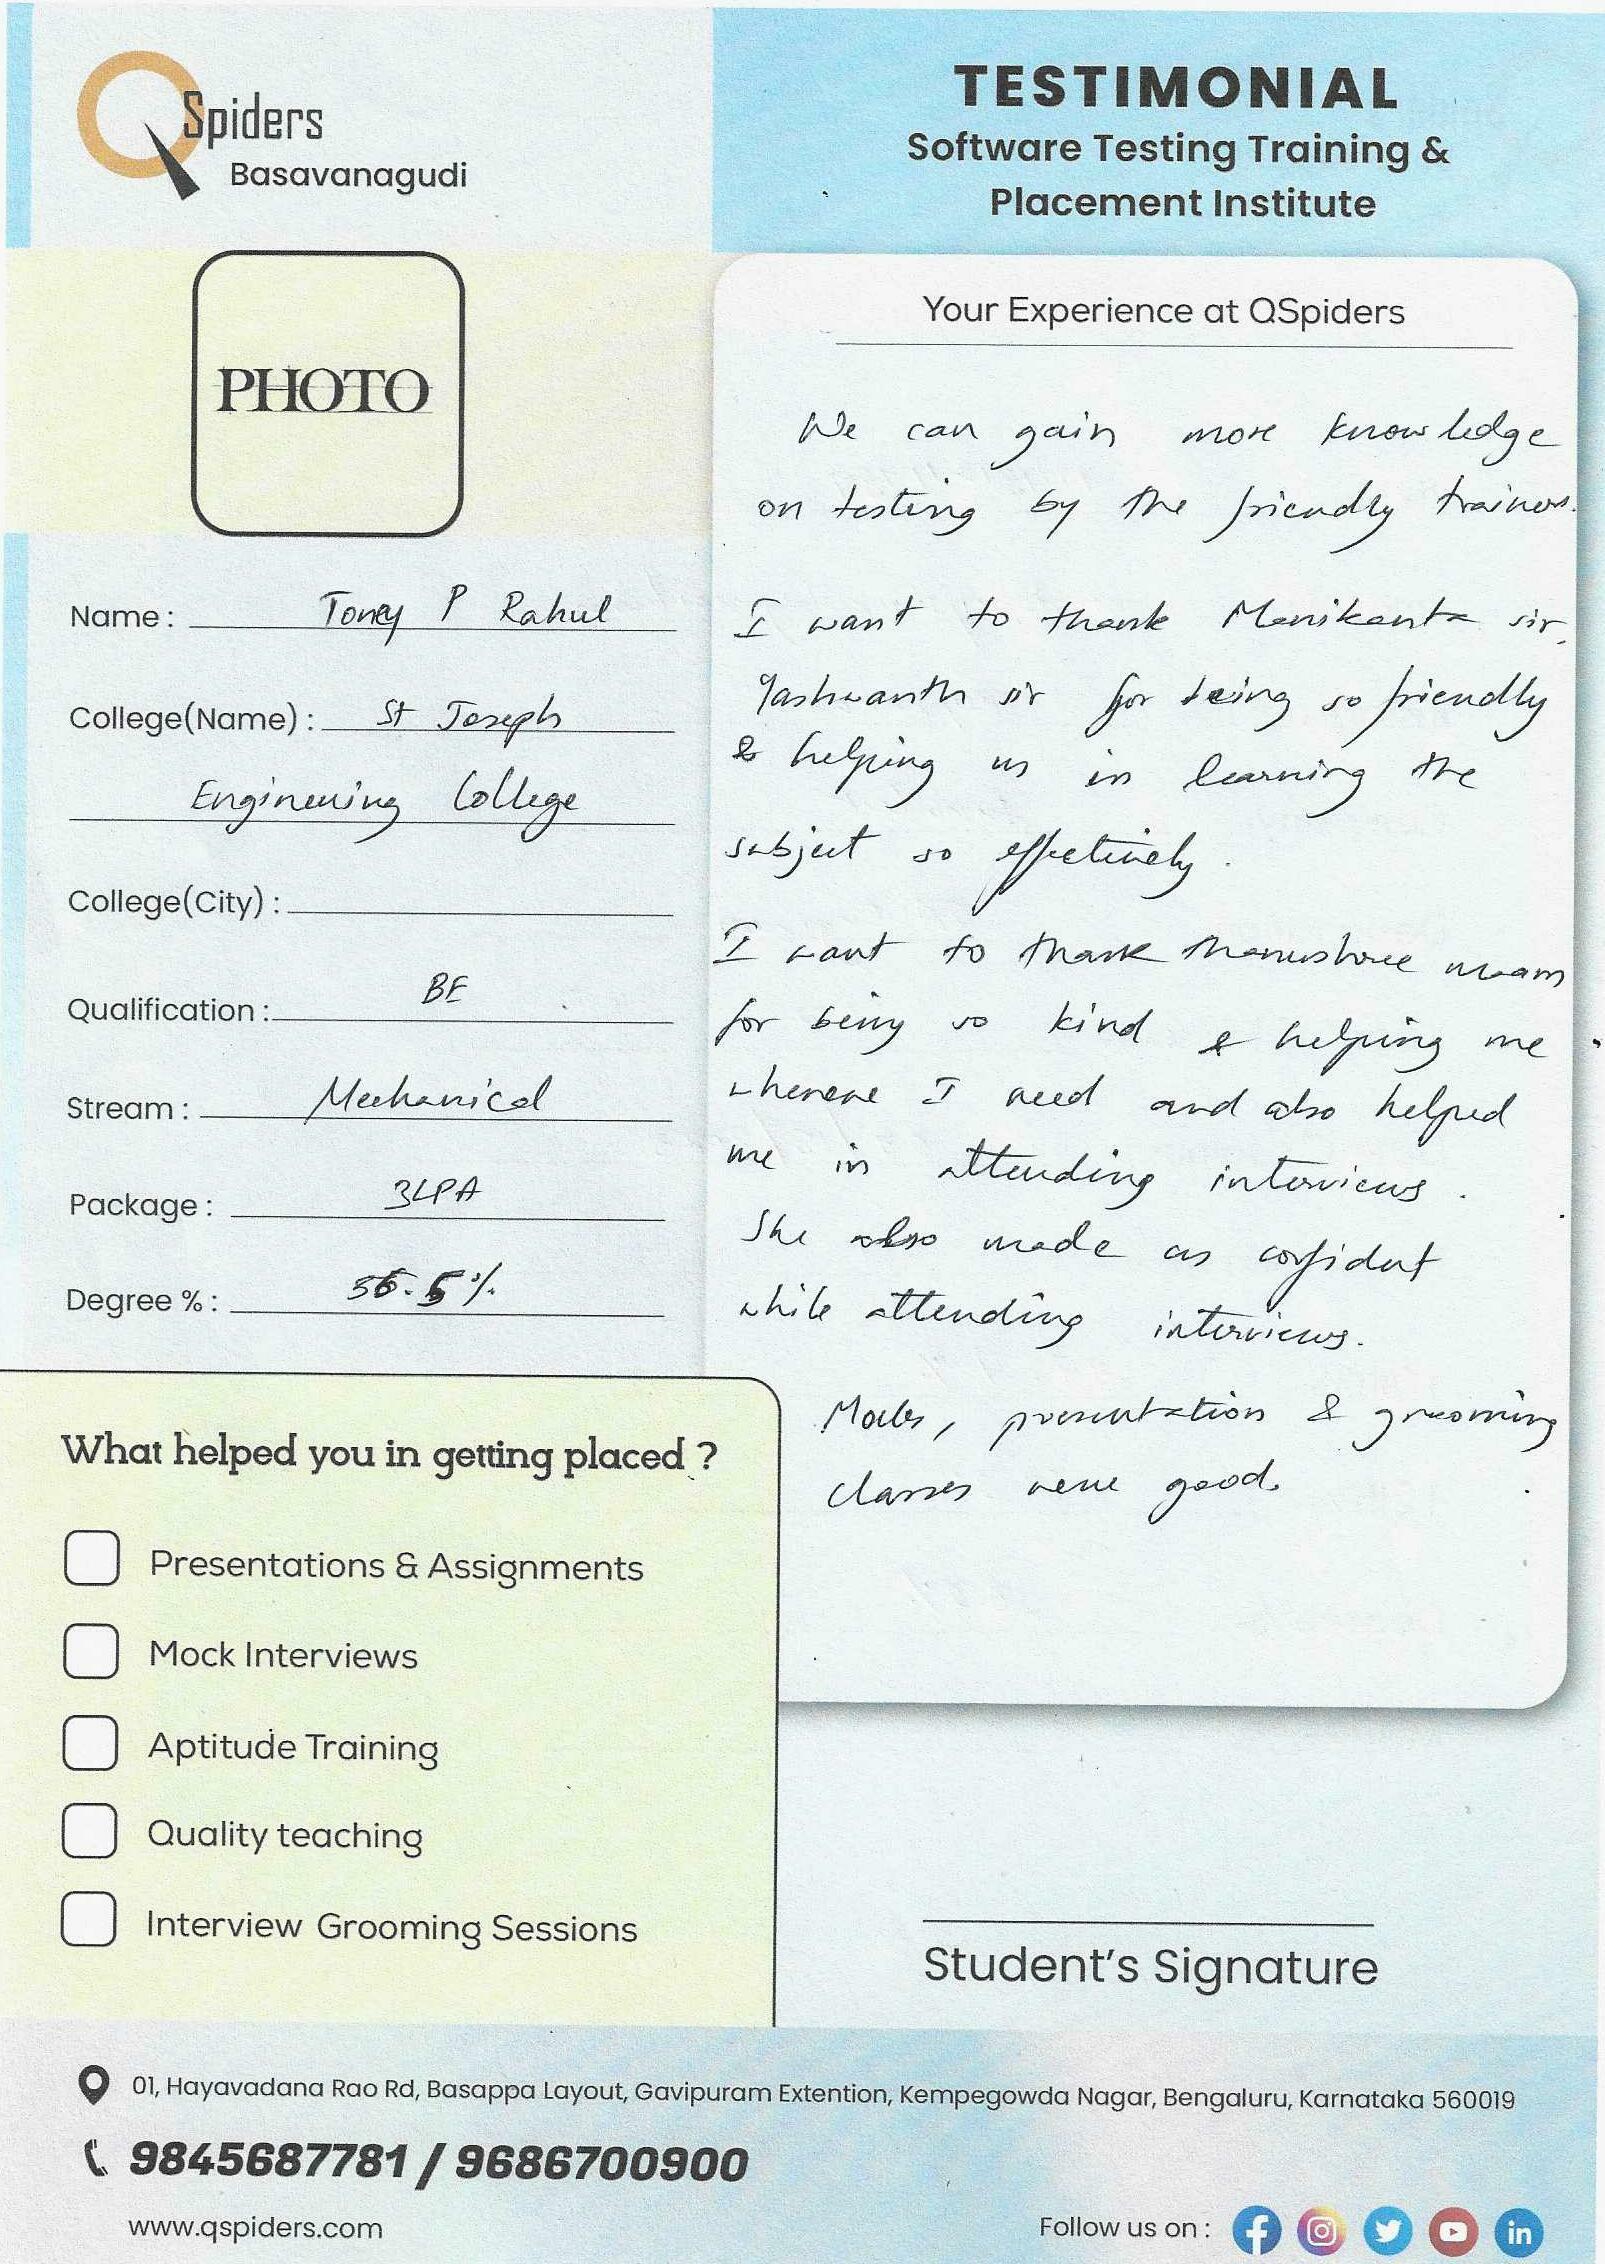 QSpiders
Basavanagudi
TESTIMONIAL
Software Testing Training &
Placement Institute
PHOTO
Name : Toney P Rahul
College(Name) : St Joseph
Engineering College
College(City) :
Qualification : BE
Stream : Mechanical
Package : 3LPA
Degree % : 56.5%
Your Experience at QSpiders
We can gain more knowledge
on testing by the friendly trainers.
I want to thank Manikanta sir,
Yashwanth sir for being so friendly
& helping us in learning the
subject so effectively.
I want to thank Thanushree maam
for being so kind & helping me
whenere I need and also helped
me in attending interviews.
She also made us confident
while attending interviews.
Mocks, presentation & grooming
classes were good.
What helped you in getting placed ?
Presentations & Assignments
Mock Interviews
Aptitude Training
Quality teaching
Interview Grooming Sessions
Student's Signature
01, Hayavadana Rao Rd, Basappa Layout, Gavipuram Extention, Kempegowda Nagar, Bengaluru, Karnataka 560019
9845687781 / 9686700900
www.qspiders.com
Follow us on :